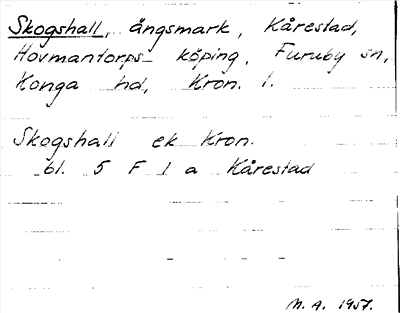 Skogshall, ängsmark, Kårestad,
Hovmantorps köping, Furuby sn,
Konga hd, Kron. l.
Skogshall ek Kron.
bl. 5 F 1 a Kårestad
M. A. 1957.